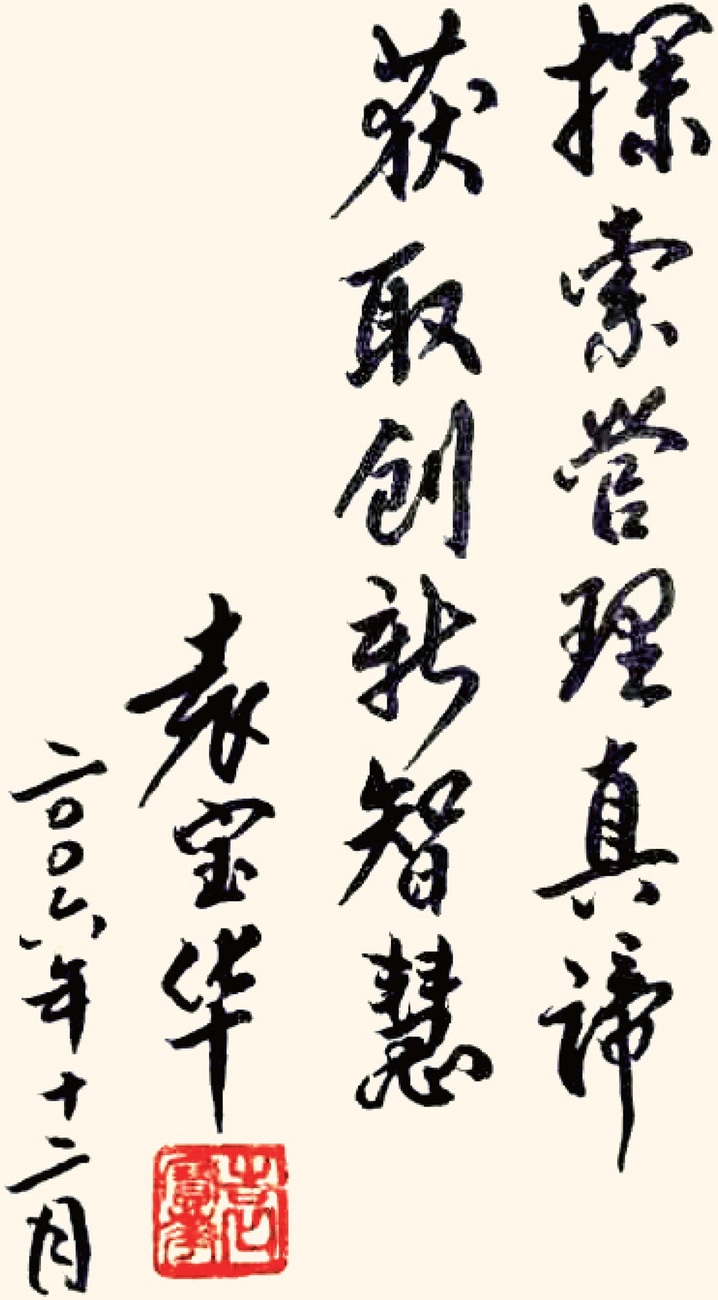 探索营理真谛
获取创新智慧
袁宝华
二〇〇六年十二月
袁寶華